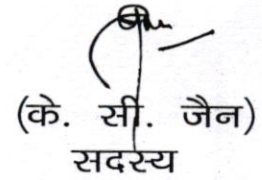 (के. सी. जैन)
सदस्य